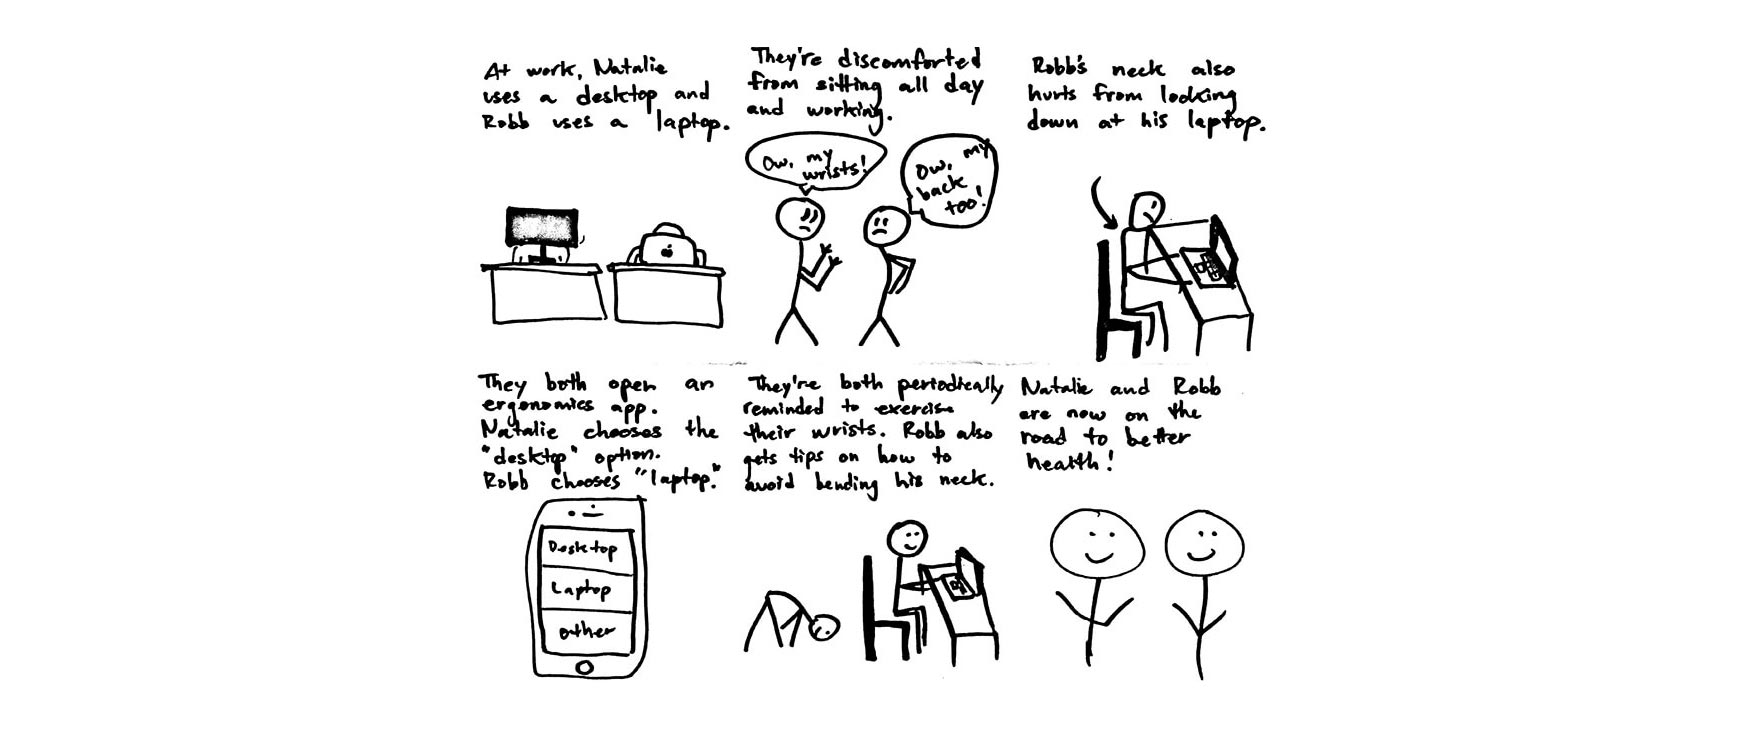 At work, Natalie
uses a desktop and
Robb uses a laptop.
They're discomforted
from sitting all day
and working.
Ow, my
wrists!
Ow, my
back
too!
Robb's neck also
hurts from looking
down at his laptop.
They both open an
ergonomics app.
Natalie chooses the
"desktop" option.
Robb chooses "laptop."
Desktop
Laptop
other
They're both periodically
reminded to exercise
their wrists. Robb also
gets tips on how to
avoid bending his neck.
Natalie and Robb
are now on the
road to better
health!